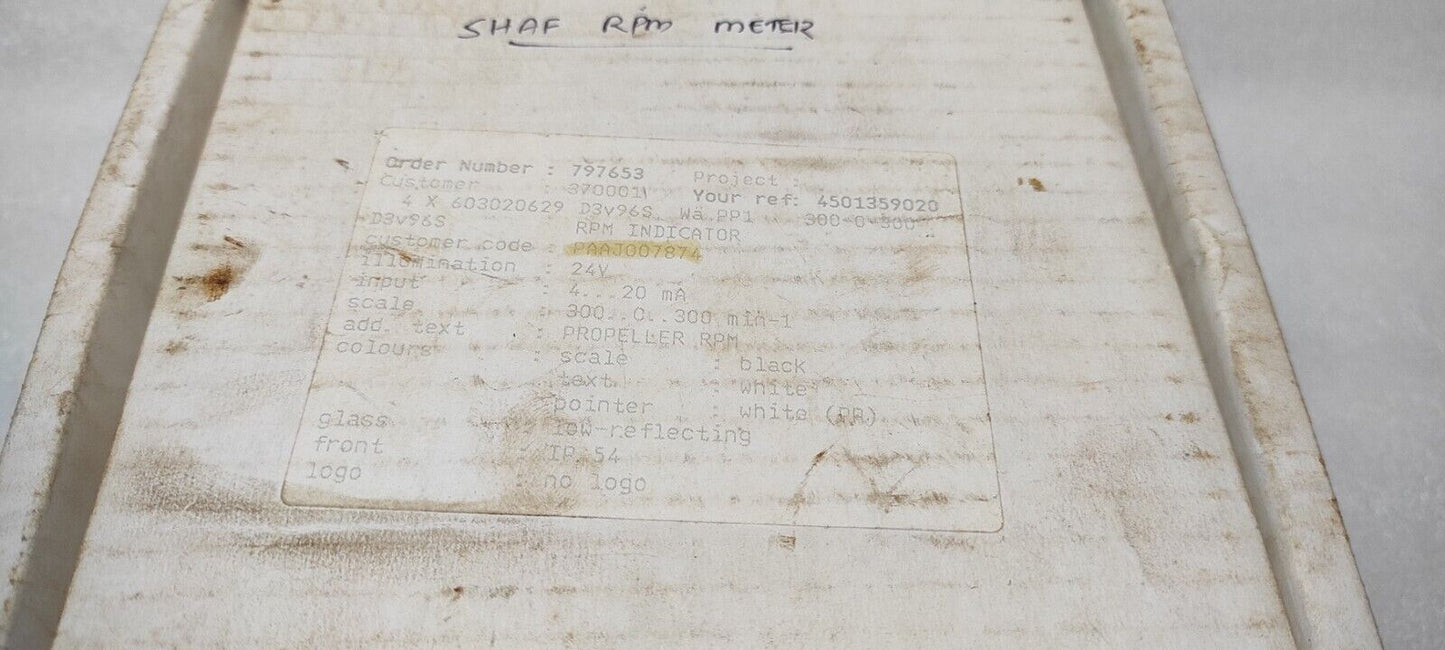 SHAF RPM METER
Order Number : 797653 Project :
Customer : 370001 Your ref: 4501359020
4 X 603020629 D3v96S Wa PP1 300-0-300
D3v96S RPM INDICATOR
customer code : PAAJ007874
illumination : 24V
input : 4...20 mA
scale : 300..0..300 min-1
add. text : PROPELLER RPM
colours : scale : black
text : white
pointer : white (PR)
glass : low-reflecting
front : IP 54
logo : no logo